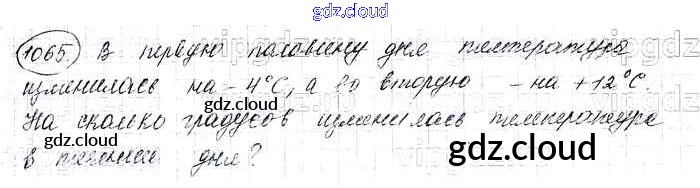 gdz.cloud
1065. В первую половину дня температура
изменилась на -4°С, а во вторую - на +12°С.
gdz.cloud gdz.cloud
На сколько градусов изменилась температура
в течение дня?
gdz.cloud gdz.cloud